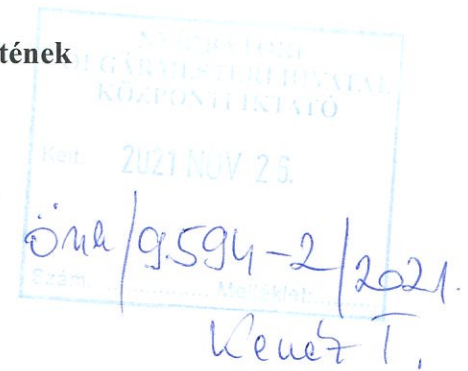 tének
POLGÁRMESTERI HIVATAL
KÖZPONTI IKTATÓ
Kelt: 2021 NOV 26.
Önk/9594-2/2021.
Szám: .......... Melléklet: ..........
Kenéz T.